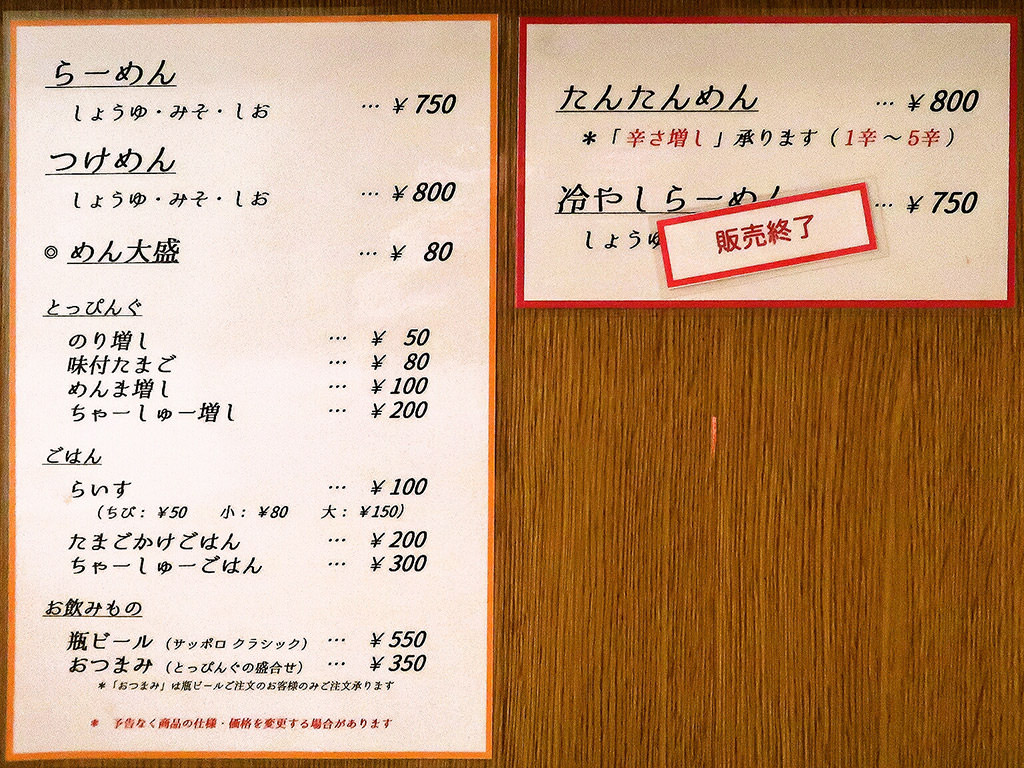 らーめん
しょうゆ・みそ・しお … ¥750
つけめん
しょうゆ・みそ・しお … ¥800
◎ めん大盛 … ¥ 80
とっぴんぐ
のり増し … ¥ 50
味付たまご … ¥ 80
めんま増し … ¥100
ちゃーしゅー増し … ¥200
ごはん
らいす … ¥100
（ちび： ¥50 小： ¥80 大： ¥150）
たまごかけごはん … ¥200
ちゃーしゅーごはん … ¥300
お飲みもの
瓶ビール （サッポロ クラシック） … ¥550
おつまみ （とっぴんぐの盛合せ） … ¥350
＊「おつまみ」は瓶ビールご注文のお客様のみご注文承ります
＊ 予告なく商品の仕様・価格を変更する場合があります
たんたんめん … ¥800
＊「辛さ増し」承ります（1辛～5辛）
冷やしらーめん … ¥750
しょうゆ
販売終了